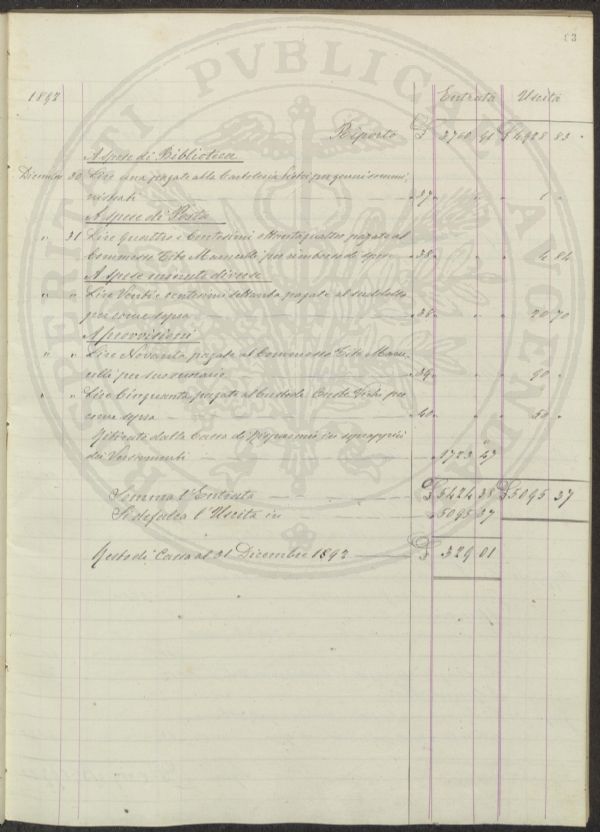 83
PROSPERITATI PVBLICAE AVGENDAE
1892 Entrata Uscita
Riporto £ 3700 91 £ 4928 83
A Spese di Biblioteca
Dicembre 30 Lire una pagate alla Cartoleria per
37 1
A Spese di Posta
" 31 Lire quattro e Centesimi ottantaquattro pagate al
Commesso Tito Mamelli per rimborso di spese 38 4 84
A Spese minute diverse
" " Lire Venti e centesimi settanta pagate al suddetto
per come sopra 38 20 70
A provvisioni
" " Lire Novanta pagate al Commesso Tito Mam-
elli per suo onorario 39 90
" " Lire Cinquanta pagate al Custode per
come sopra 40 50
Ritirate dalla Cassa di Risparmio in
dei Versamenti 1723 47
Somma l'Entrata £ 5424 38 £ 5095 37
Si defalca l'Uscita in 5095 37
Resto di Cassa al 31 Dicembre 1892 £ 329 01